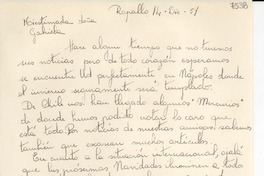 7538
Rapallo 14 - Dic - 51
Reestimada doña
Gabriela
Hace algun tiempo que no tenemos
sus noticias que de todo corazón esperamos
se encuentre Ud perfectamente en Nápoles donde
el invierno seguramente es más templado.
De Chile nos han llegado algunos "Mercurios"
de donde hemos podido notar lo caro que
está todo. Por noticias de nuestros amigos sabemos
también que escasean muchos artículos.
En cuanto a la situación internacional, ojalá
que las próximas Navidades iluminen a todo